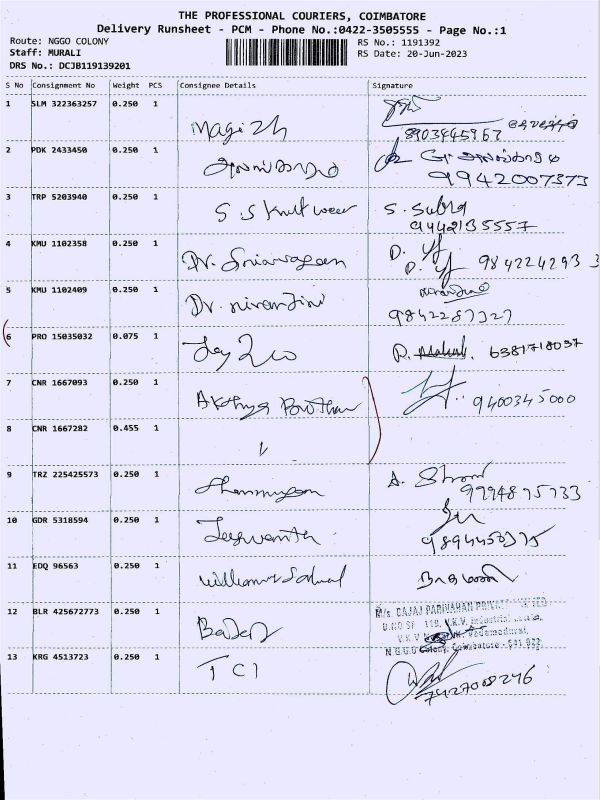 THE PROFESSIONAL COURIERS, COIMBATORE
Delivery Runsheet - PCM - Phone No.:0422-3505555 - Page No.:1
Route: NGGO COLONY RS No.: 1191392
Staff: MURALI RS Date: 20-Jun-2023
DRS No.: DCJB119139201
S No Consignment No Weight PCS Consignee Details Signature
1 SLM 322363257 0.250 1 Magizh 8903445967
2 PDK 2433450 0.250 1 9942007373
3 TRP 5203940 0.250 1 S.S Knit wear S. Subha 9442135557
4 KMU 1102358 0.250 1 Dr. 984224293 3
5 KMU 1102409 0.250 1 Dr. niranjini 9842287327
6 PRO 15035032 0.075 1 6381718037
7 CNR 1667093 0.250 1 Akthya 9400345000
8 CNR 1667282 0.455 1
9 TRZ 225425573 0.250 1 Shanmugam A.
10 GDR 5318594 0.250 1 Jeyavanth
11 EDQ 96563 0.250 1
12 BLR 425672773 0.250 1 M/s. BAJAJ PARIVAHAN PRIVATE LIMITED
Coimbatore - 641 022
13 KRG 4513723 0.250 1 TCI 7427008246